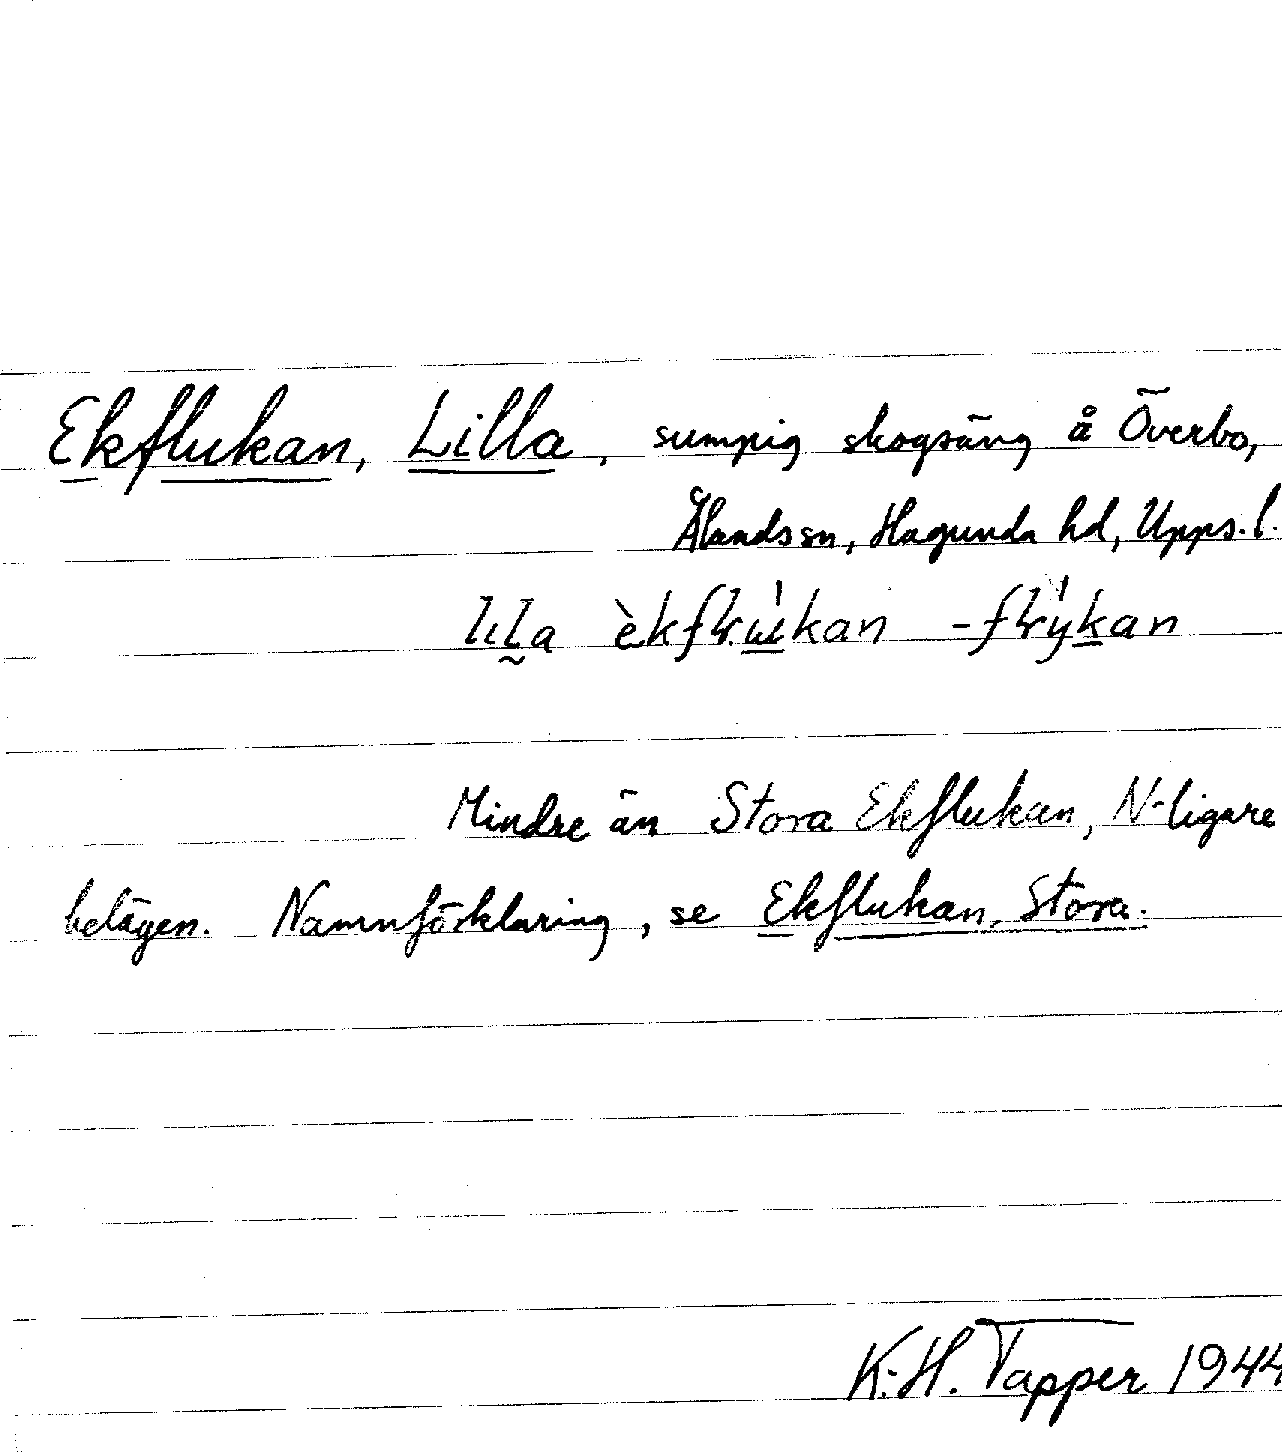 Ekflukan, Lilla, sumpig skogsäng å Överbo,
Ålands sn, Hagunda hd, Upps. l.
lıla èkf kan -f kan
Mindre än Stora Ekflukan, N-ligare
belägen. Namnförklaring, se Ekflukan, Stora.
K.-H. Tapper 1944